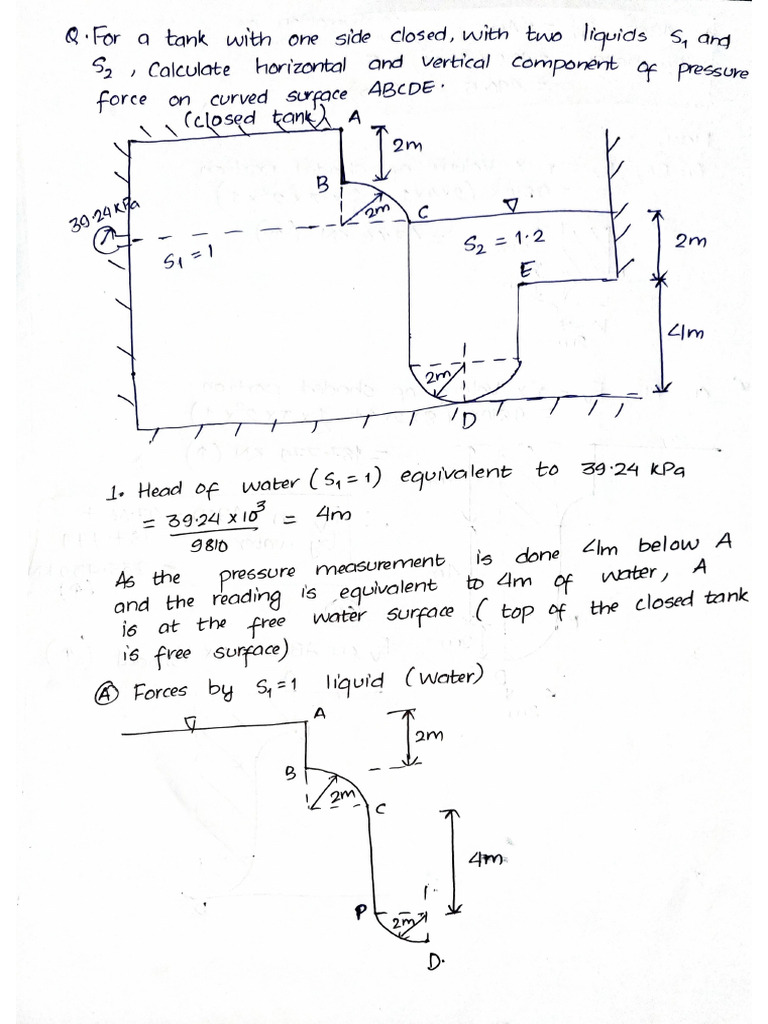 Q. For a tank with one side closed, with two liquids S₁ and
S₂, Calculate horizontal and vertical component of pressure
force on curved surface ABCDE.
(closed tank)
A
2m
B
39.24 kPa
2m
C
S₁ = 1
S₂ = 1.2
2m
E
4m
2m
D
1. Head of water (S₁ = 1) equivalent to 39.24 kPa
= 39.24 × 10³ = 4m
9810
As the pressure measurement is done 4m below A
and the reading is equivalent to 4m of water, A
is at the free water surface ( top of the closed tank
is free surface)
Ⓐ Forces by S₁=1 liquid (Water)
A
2m
B
2m
C
4m
P
2m
D.